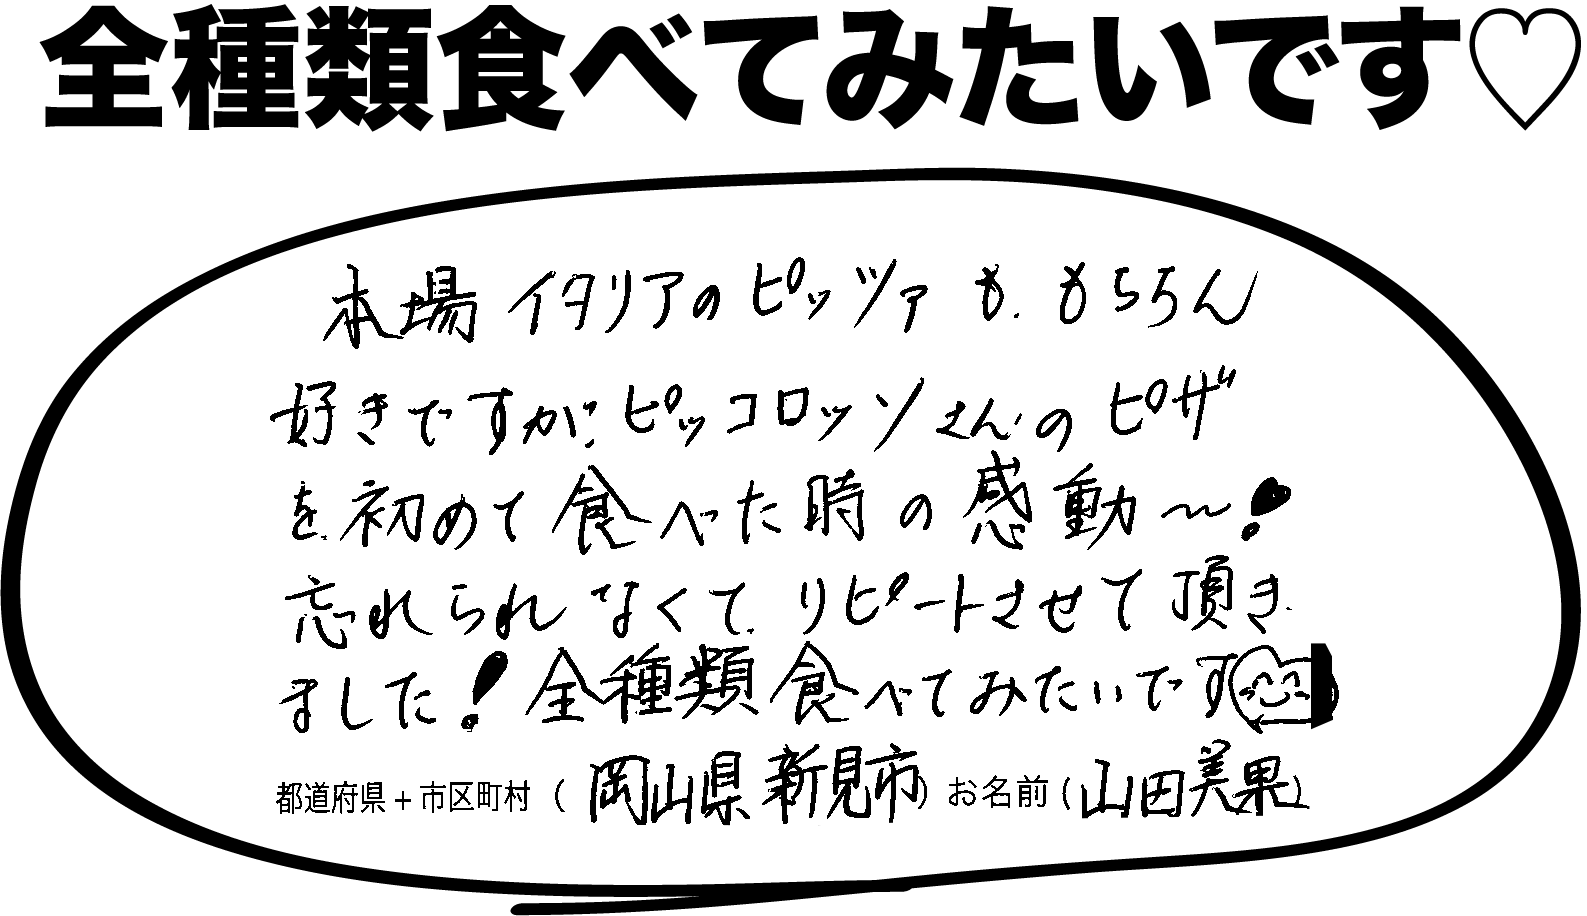 全種類食べてみたいです♡
本場イタリアのピッツァも、もちろん
好きですが、ピッコロッソさんのピザ
を初めて食べた時の感動〜!
忘れられなくてリピートさせて頂き
ました!全種類食べてみたいです
都道府県+市区町村(岡山県新見市)お名前(山田美果)